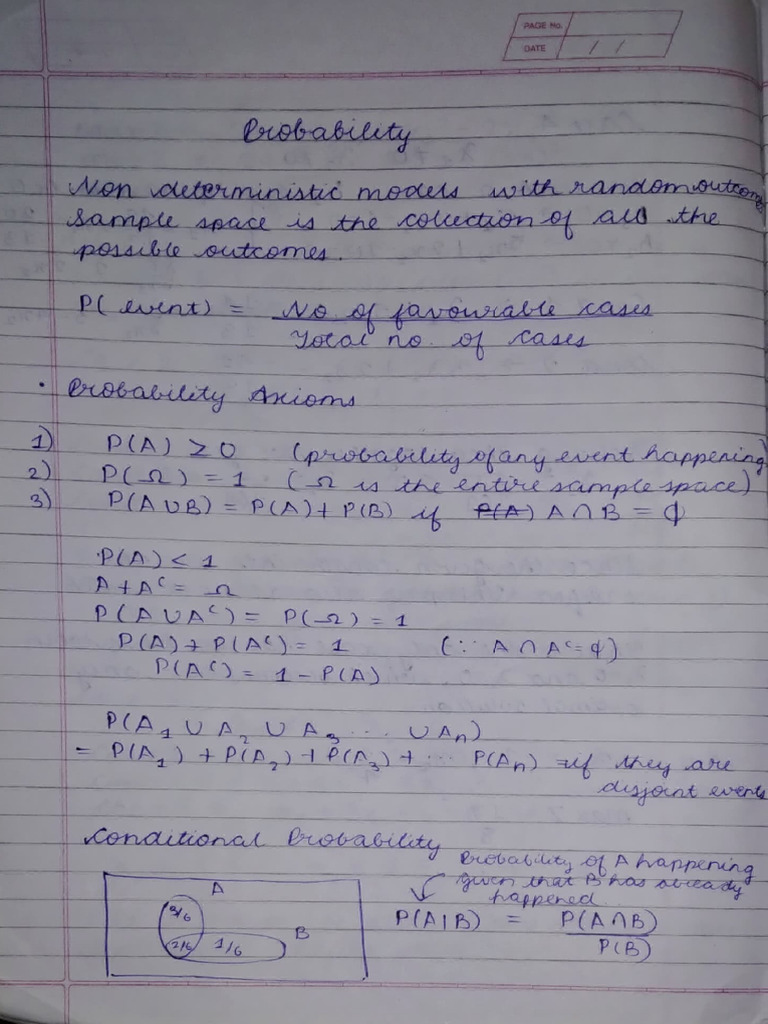 PAGE No.
DATE / /
Probability
Non deterministic models with random outcome
Sample space is the collection of all the
possible outcomes.
P( event) = No of favourable cases
Total no. of cases
• Probability Axioms
1) P(A) ≥ 0 (probability of any event happening)
2) P(Ω) = 1 (Ω is the entire sample space)
3) P(A∪B) = P(A) + P(B) if P(A) A∩B = ϕ
P(A) < 1
A + Aᶜ = Ω
P(A∪Aᶜ) = P(Ω) = 1
P(A) + P(Aᶜ) = 1 (∵ A∩Aᶜ=ϕ)
P(Aᶜ) = 1 - P(A)
P(A₁ ∪ A₂ ∪ A₃ ... ∪ Aₙ)
= P(A₁) + P(A₂) + P(A₃) + ... P(Aₙ) =if they are
disjoint events
Conditional Probability
Probability of A happening
given that B has already
happened.
A
B
3/6
2/6 1/6
P(A|B) = P(A∩B)
P(B)